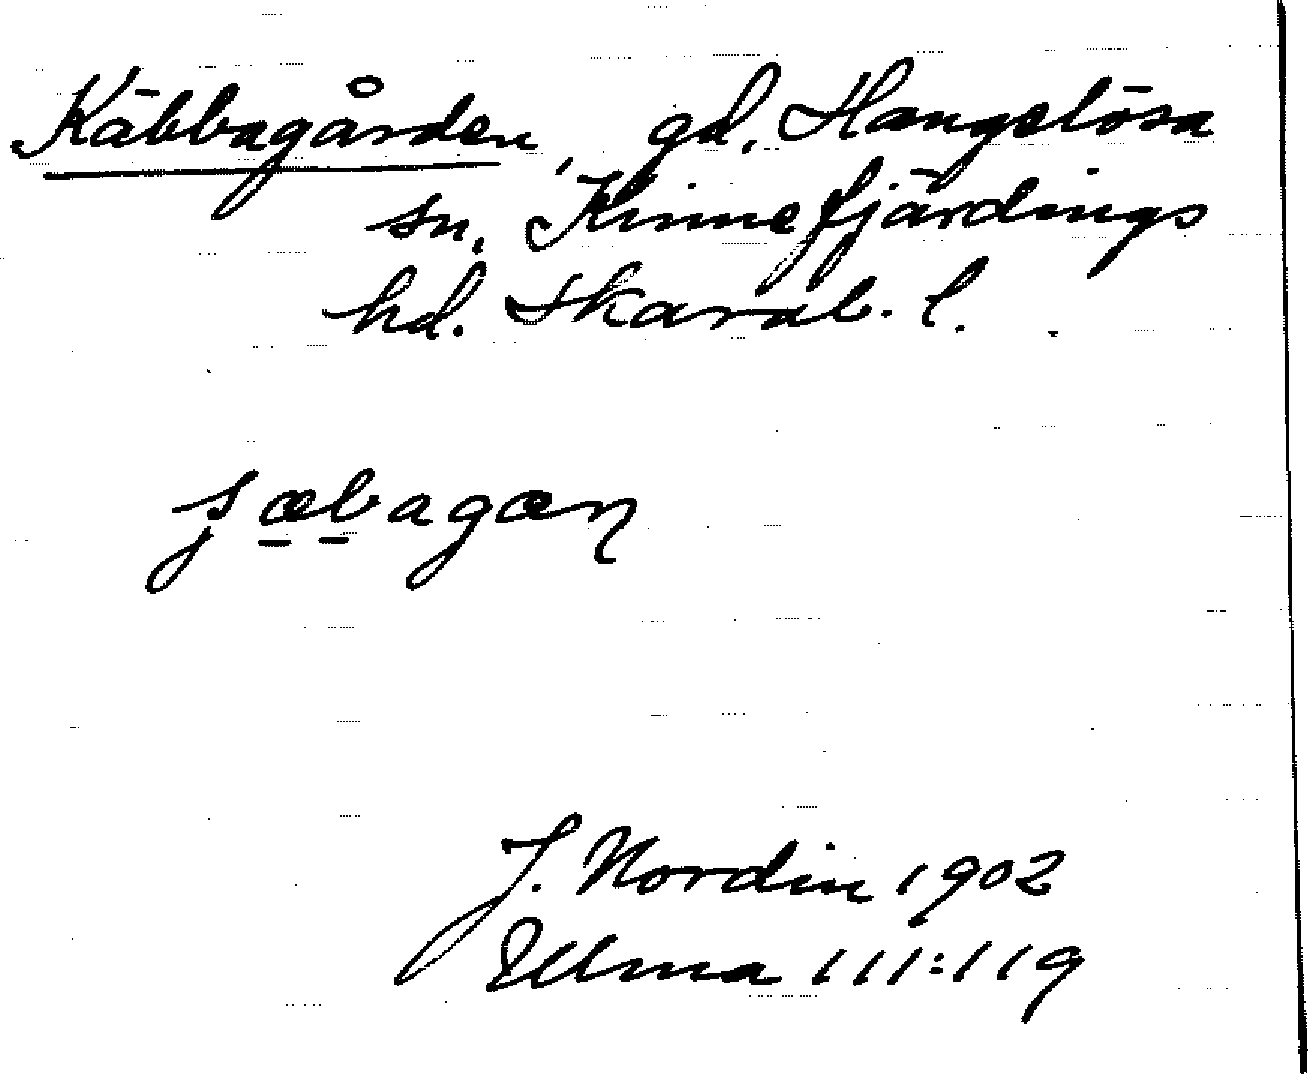 Käbbagården, gd. Hangelösa
sn, Kinnefjärdings
hd. Skarab. l.
J. Nordin 1902
Ulma 111:119